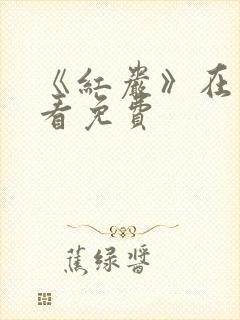 《紅巖》在
看免費
蕉绿醬